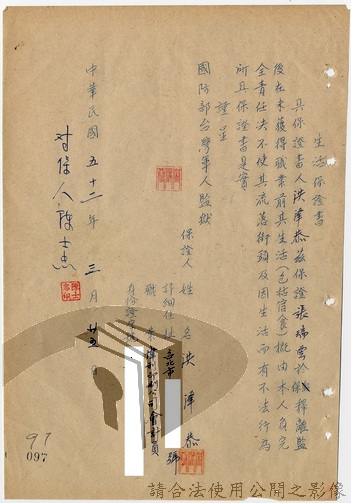 生活保證書
具保證書人洪澤恭茲保證張瑞雲於保釋離監
後在未獲得職業前其生活(包括宿食)概由本人負完
全責任決不使其流落街頭及因生活而有不法行為
所具保證書是實
謹呈
國防部台灣軍人監獄
保證人 姓名 洪澤恭
詳細住址 台北市 號
職業 印刷公司會計員
身份證
中華民國 五十二年 三月 廿五日
对保人
97
097
請合法使用公開之影像